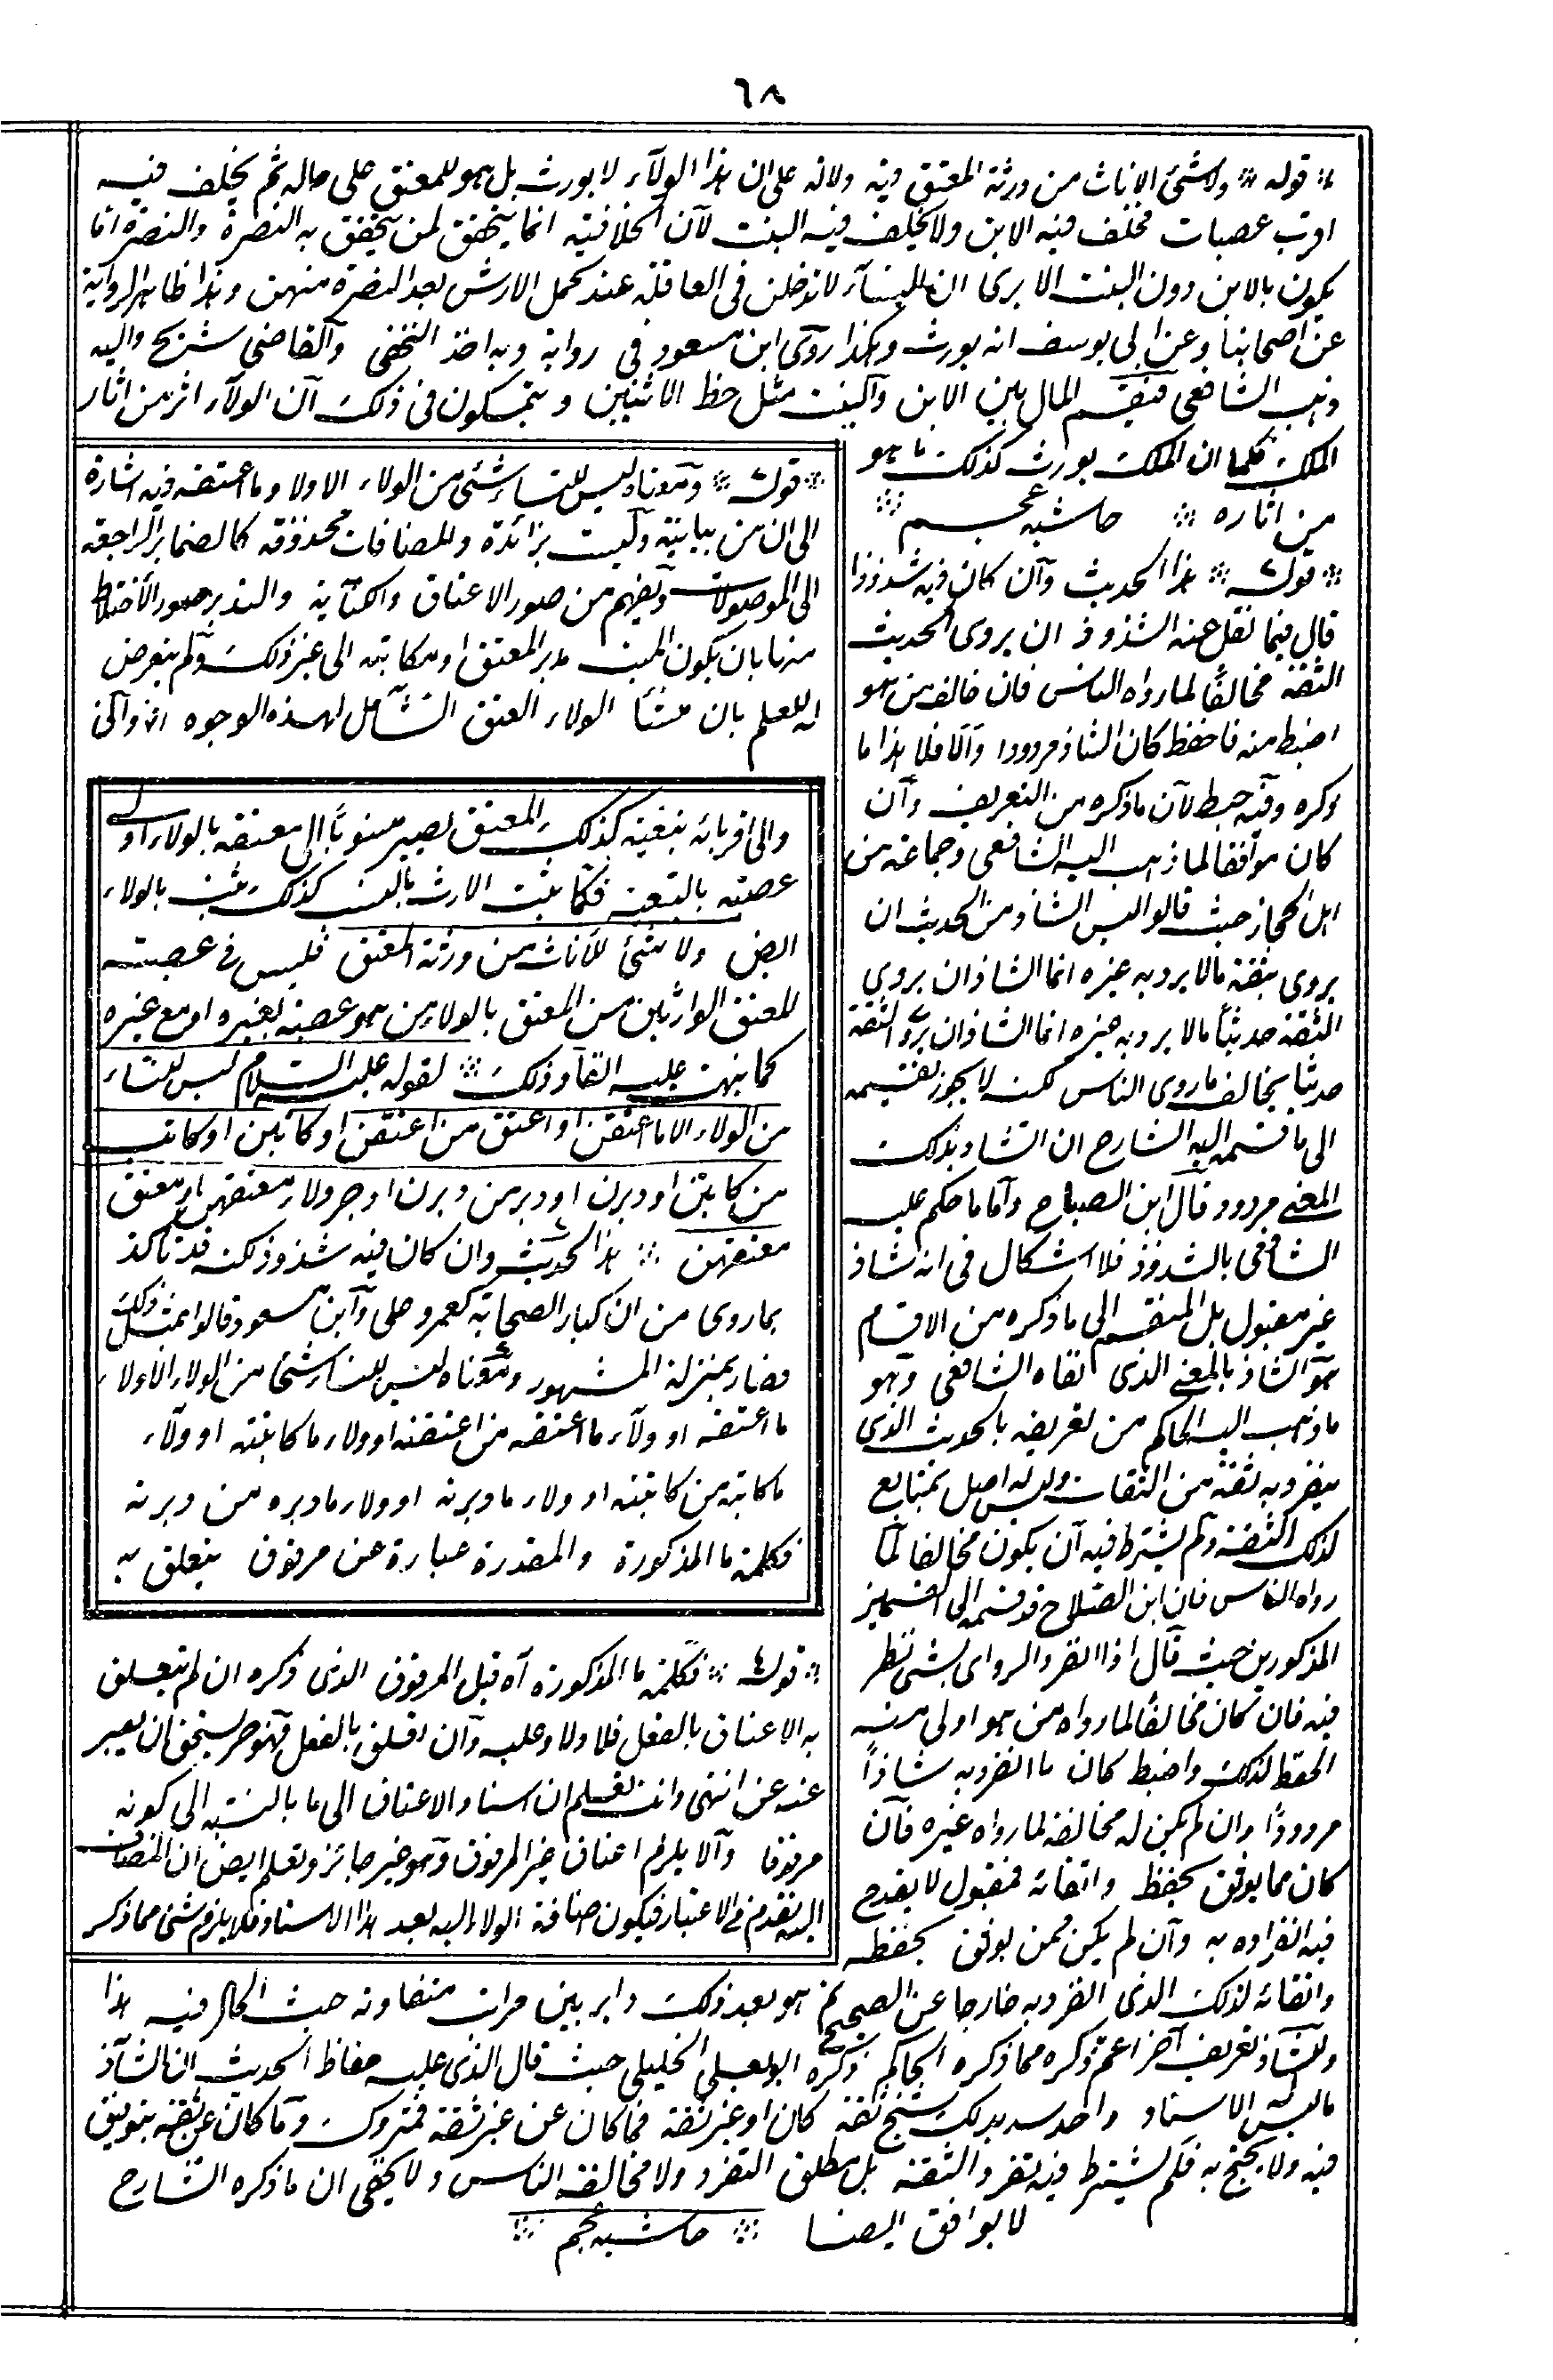 ٦٨
قوله ولا شئ لاناث من ورثة المعتق فيه دلالة على ان هذا الولآء لا يورث بل هو للمعتق على حاله ثم يخلف فيه
اقرب عصبات فخلف فيه الابن ولا يخلف فيه البنت لآن الخلافية انما يتحقق لمن يتحقق به النصرة والنصرة انما
يكون بالابن دون البنت الا يرى ان النسآء لا تدخلن فى العاقلة عند تحمل الارش لعدم النصرة منهن وهذا ظاهر الرواية
عن اصحابنا وعن ابى يوسف انه يورث وهكذا روى ابن مسعود فى رواية وبه اخذ النخعى وآلقاضى شريح واليه
ذهب الشافعى فيقسم المال بين الابن وآلبنت مثل حظ الانثيين ويتمسكون فى ذلك آن الولآء اثر من اثار
الملك فكما ان الملك يورث كذلك ما هو
من اثاره حاشيه عجم
قوله هذا الحديث وآن كان فيه شذوذا
قال فيما نقل عنه الشذوذ ان يروى الحديث
الثقة مخالفًا لما رواه الناس فان خالف من هو
اضبط منه فاحفظ كان الشاذ مردودا وآلا فلا هذا ما
ذكره وفيه خبط لآن ما ذكره من التعريف وآن
كان موافقا لما ذهب اليه الشافعى وجماعة من
اهل الحجاز حيث قالوا ليس الشاذ من الحديث ان
يروى ثقة مالا يرويه غيره انما الشاذ ان يروى
الثقة حديثًا مالا يرويه غيره انما الشاذ ان يروى الثقة
حديثا يخالف ما روى الناس لكن لا يجوز تقسيمه
الى ما قسمه اليه الشارح ان الشاذ بذلك
المعنى مردود قال ابن الصلاح وآما ما حكم عليه
الشافعى بالشذوذ فلا اشكال فى انه شاذ
غير مقبول بل المنقسم الى ما ذكره من الاقسام
هو آلشاذ بالمعنى الذى نفاه الشافعى وهو
ما ذهب اليه الحاكم من تعريفه بالحديث الذى
ينفرد به ثقة من الثقات وليس له اصل بمتابع
لذلك الثقة ولم يشترط فيه آن يكون مخالفا لما
رواه الناس فان ابن الصلاح قد قسمه الى القسمين
المذكورين حيث قال اذا انفرد الرواى بشئ نظر
فيه فان كان مخالفًا لما رواه من هو اولى منه
الحفظ لذلك واضبط كان ما انفرد به شاذًا
مردودًا وان لم يكن له مخالفة لما رواه غيره فآن
كان مما يوثق بحفظه واتقانه فمقبول لا يقدح
فيه انفراده به وآن لم يكن ممن يوثق بحفظه
واتقانه لذلك الذى انفرد به خارجا عن الصحيح ثم هو بعد ذلك داير بين مراتب متفاوته حيث الحال فيه هذا
وللشاذ تعريف آخر اعم ذكره مما ذكره الحاكم ذكره ابو يعلى الخليلى حيث قال الذى عليه حفاظ الحديث ان الشآذ
ما ليس له الا اسناد واحد بذلك شيخ ثقة كان او غير ثقة فما كان عن غير ثقة فمتروك وما كان عن ثقة يتوقف
فيه ولا يحتج به فلم يشترط فيه تفرد الثقة بل مطلق التفرد ولا مخالفة الناس ولا يخفى ان ما ذكره الشارح
لا يوافق ايضا حاشيه عجم
قوله ومعناه ليس للنساء شئ من الولاء الا ولاء ما اعتقه فيه اشارة
الى ان من بيانية وليست بزائدة وللمضافات محذوفة كالضماير الراجعة
الى الموصولات ويفهم من صور الاعتاق والكتابة والتدبير صور الاختلاط
منها بان يكون الميت مدبر المعتق او مكاتبه الى غير ذلك ولم يتعرض
له للعلم بان منشأ الولاء العتق الشآمل لهذه الوجوه
والى اقربائه بتبعيته كذلك المعتق يصير منسوبًا الى معتقه بالولاء او لـ
عصبته بالتبعية فكما يثبت الارث بالنسب كذلك يثبت بالولاء
ايض ولا شئ للاناث من ورثة المعتق فليس فى عصبته
المعتق الوارثين من المعتق بالولاء من هو عصبة بغيره او مع غيره
كما نبهت عليه القآ وذلك لقوله عليه السلام ليس للنساء
من الولاء الا ما اعتقن او اعتق من اعتقن او كاتبن او كاتب
من كاتبن او دبرن او دبر من دبرن او جر ولاء معتقهن او معتق
معتقهن هذا الحديث وان كان فيه شذوذ لكنه قد تأكد
بما روى من ان كبار الصحابة كعمر وعلى وآبن مسعود قالوا بمثل ذلك
فصار بمنزلة المشهور ومعناه ليس للنساء شئ من الولاء الا ولاء
ما اعتقه او ولآء ما اعتقه من اعتقنه او ولاء ما كاتبته او ولآء
ما كاتبه من كاتبته او ولاء ما دبرته او ولاء ما دبره من دبرته
فكلمة ما المذكورة والمقدرة عبارة عن مرقوق يتعلق به
قوله فكلمة ما المذكورة آه قيل المرقوق الذى ذكره ان لم يتعلق
به الاعتاق بالفعل فلا ولاء عليه وآن تعلق بالفعل فهو حر يستحق ان يعبر
عنه عن انتهى وانت تعلم ان اسناد الاعتاق الى ما بالنسبة الى كونه
مرقوقا وآلا يلزم اعتاق غير المرقوق وهو غير جائز وتعلم ايض ان المضاف
اليه يقدم فى الاعتبار فيكون اضافة الولاء اليه بعد هذا الاسناد فلا يلزم شئ مما ذكر